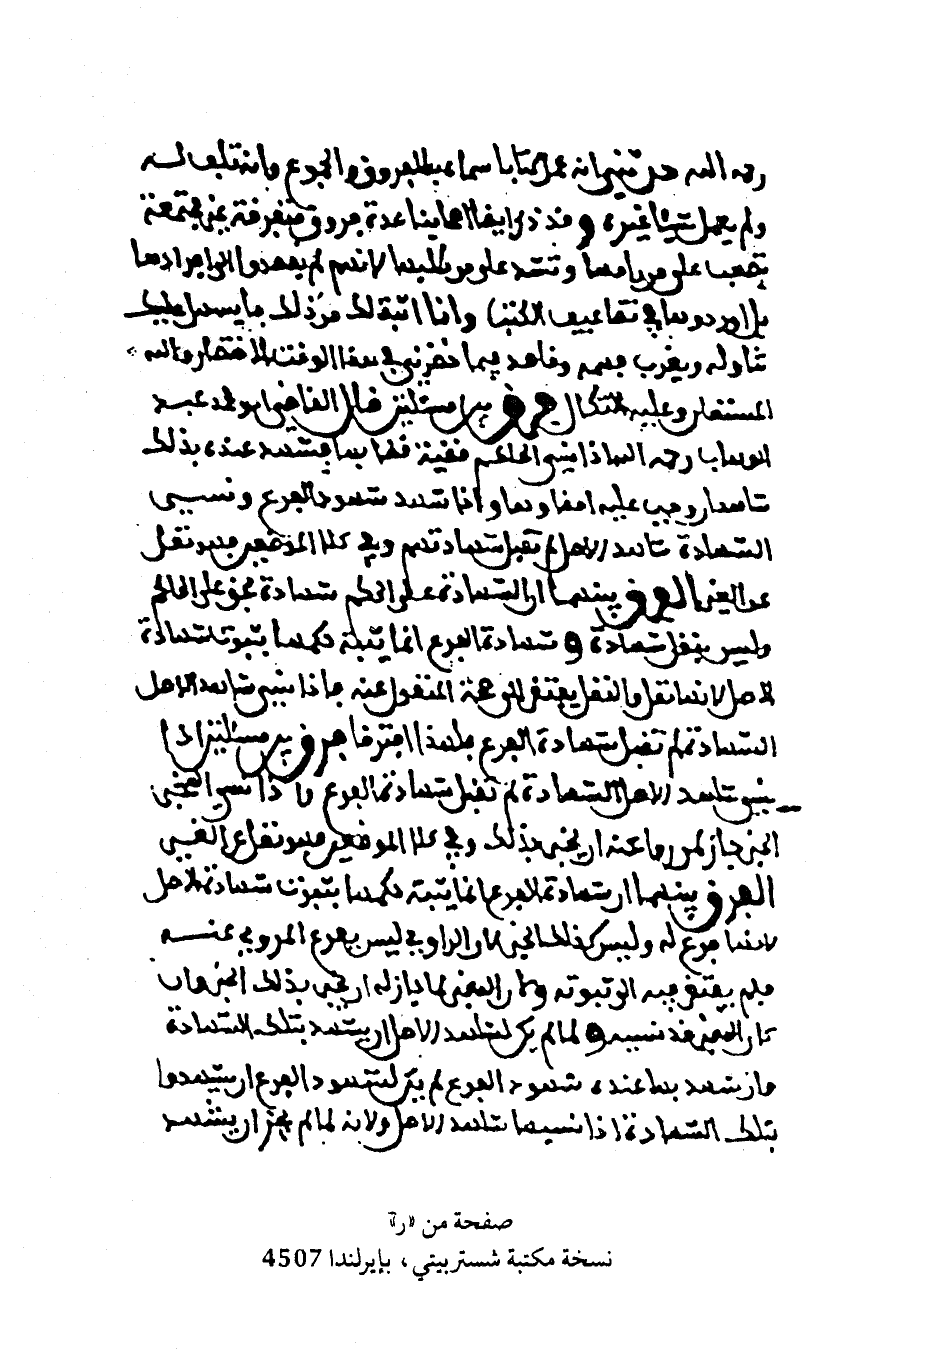 رحمه الله حدثني انه عمل كتابا سماه بالفروق والجموع وانه تلف له
ولم يعمل شيئا غيره وقد ذكر ايضا اصحابنا عدة فروق متفرقة غير مجتمعة
يصعب على من رامها وتشتد على من طلبها لانهم لم يقصدوا الى ايرادها
بل اوردوها في تضاعيف الكتب وانا اثبت لك من ذلك ما يسهل عليك
تناوله ويقرب فهمه وقاصد فيما حضرني في هذا الوقت الاختصار والله
المستعان وعليه الاتكال فرق بين مسئلتين قال القاضي ابو محمد عبد
الوهاب رحمه الله اذا نسي الحاكم قضية قضا بها فشهد عنده بذلك
شاهدان وجب عليه امضاوها واذا شهد شهود الفرع ونسي
الشهادة شاهد الاصل لم تقبل شهادتهم وفي كلا الموضعين فهو نقل
عن الغير الفرق بينهما ان الشهادة على الحاكم شهادة بحق على الحاكم
وليس بنقل شهادة وشهادة الفرع انما يثبت حكمها بثبوت شهادة
الاصل لانها نقل والنقل يفتقر الى صحة المنقول عنه فاذا نسي شاهد الاصل
الشهادة لم تقبل شهادة الفرع فلهذا افترقا فرق بين مسئلتين اذا
نسي شاهد الاصل الشهادة لم تقبل شهادة الفرع واذا نسي المخبر
الخبر جاز لمن رواه عنه ان يخبر بذلك وفي كلا الموضعين فهو نقل عن الغير
الفرق بينهما ان شهادة الفرع انما يثبت حكمها بثبوت شهادة الاصل
لانها فرع له وليس كذلك الخبر لان الراوي ليس بفرع المروي عنه
فلم يفتقر فيه الى ثبوته وكان المخبر لما جاز له ان يخبر بذلك الخبر وان
كان المخبر قد نسيه ولما لم يكن لشاهد الاصل ان يشهد بتلك الشهادة
وان شهد بها عنده شهود الفرع لم يكن لشهود الفرع ان يشهدوا
بتلك الشهادة اذا نسيها شاهد الاصل ولانه لما لم يجز ان يشهد
صفحة من «ر»
نسخة مكتبة شستربيتي، بإيرلندا 4507